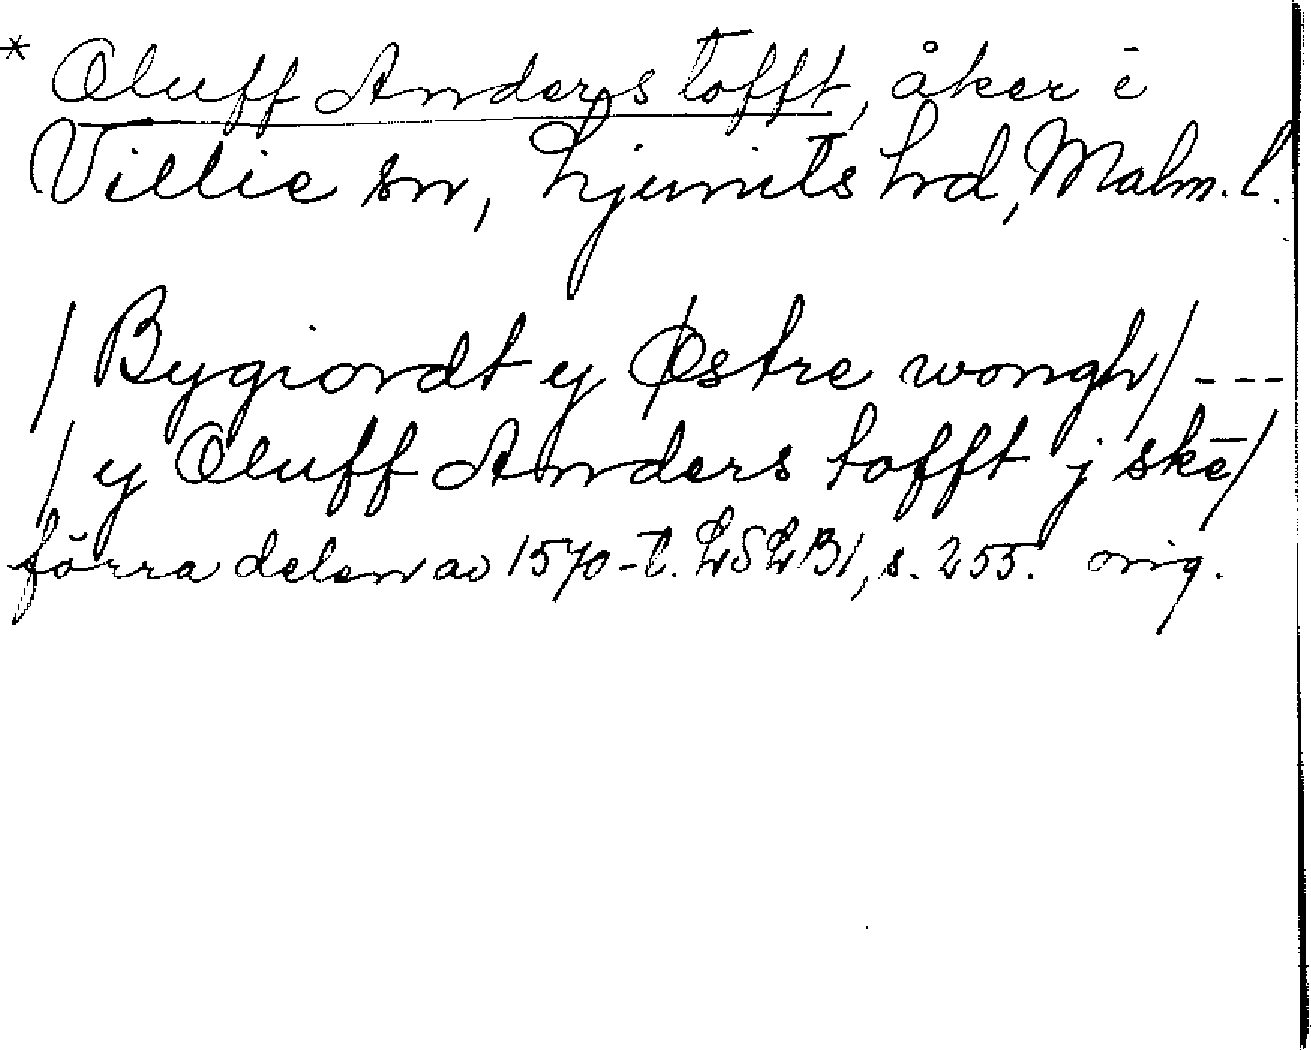 * Oluff Anders tofft, åker i
Villie sn, Ljunits hd, Malm. l.
/ Bygiordt y Østre wongh / ---
/ y Oluff Anders tofft j skē /
förra delen av 1570-t. LSLB1, s. 255. orig.